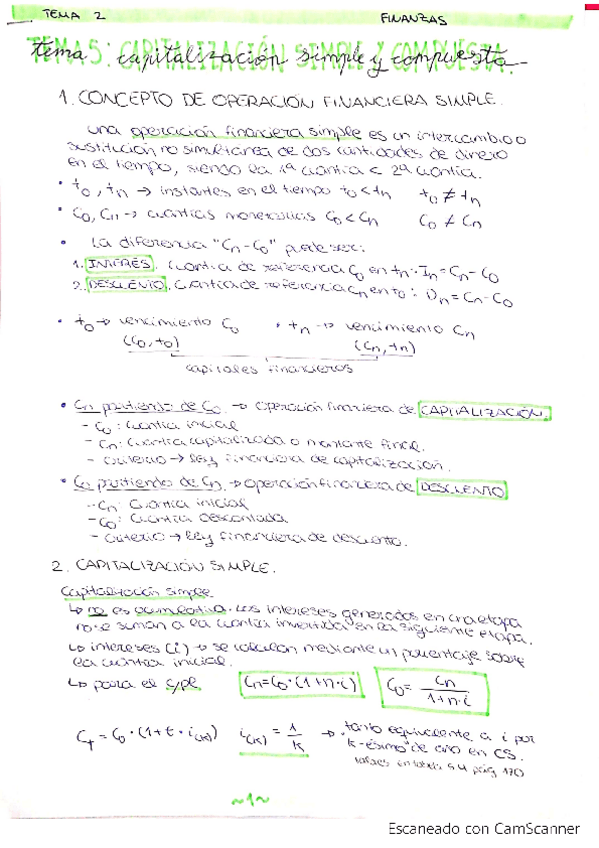 TEMA 2 FINANZAS
tema 5: capitalización simple y compuesta.
1. CONCEPTO DE OPERACIÓN FINANCIERA SIMPLE.
una operación financiera simple es un intercambio o
sustitución no simultánea de dos cantidades de dinero
en el tiempo, siendo la 1ª cuantía < 2ª cuantía.
• t0, tn → instantes en el tiempo t0 < tn t0 ≠ tn
• C0, Cn → cuantías monetarias C0 < Cn C0 ≠ Cn
• La diferencia "Cn - C0" puede ser:
1. INTERÉS, cuantía de referencia C0 en tn: In = Cn - C0
2. DESCUENTO, cuantía de referencia Cn en t0: Dn = Cn - C0
• t0 → vencimiento C0 • tn → vencimiento Cn
(C0, t0) (Cn, tn)
capitales financieros
• Cn partiendo de C0 → operación financiera de CAPITALIZACIÓN.
- C0: cuantía inicial
- Cn: cuantía capitalizada o montante final.
- criterio → ley financiera de capitalización.
• C0 partiendo de Cn → operación financiera de DESCUENTO
- Cn: cuantía inicial
- C0: cuantía descontada
- criterio → ley financiera de descuento.
2. CAPITALIZACIÓN SIMPLE.
Capitalización simple
↳ no es acumulativa. Los intereses generados en cada etapa
no se suman a la cuantía invertida en la siguiente etapa.
↳ intereses (i) → se calculan mediante un porcentaje sobre
la cuantía inicial.
↳ para el Cn = C0 · (1 + n · i) C0 = Cn / 1 + n · i
Ct = C0 · (1 + t · i(k)) i(k) = 1 / k → tanto equivalente a i por
k-ésimo de año en CS.
~1~
Escaneado con CamScanner